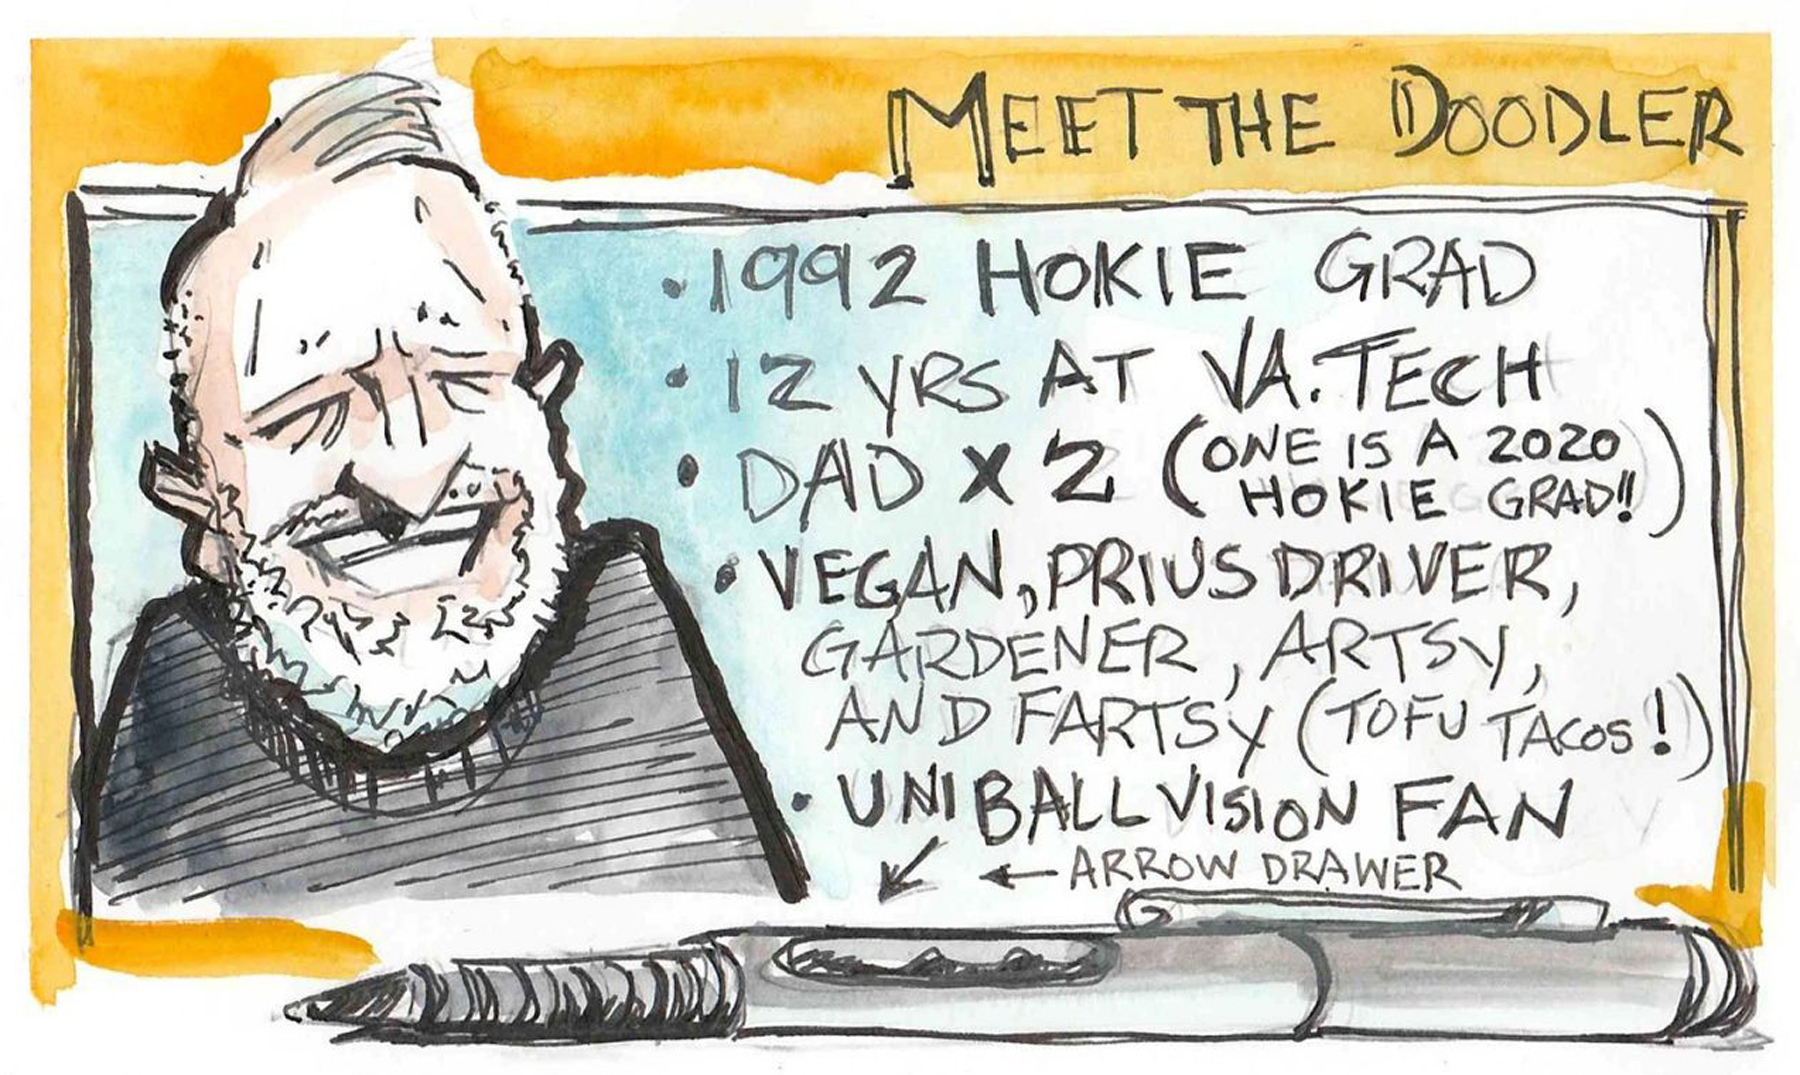 MEET THE DOODLER
• 1992 HOKIE GRAD
• 12 YRS AT VA. TECH
• DAD X 2 (ONE IS A 2020
HOKIE GRAD!!)
• VEGAN, PRIUS DRIVER,
GARDENER, ARTSY,
AND FARTSY (TOFU TACOS!)
• UNIBALL VISION FAN
← ARROW DRAWER